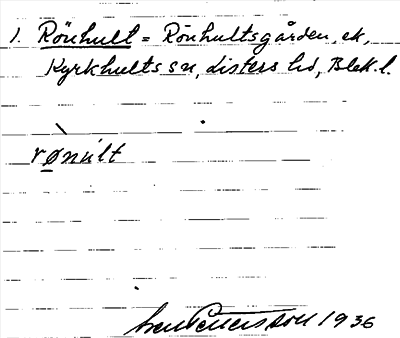 1. Rönhult = Rönhultsgården, ek,
Kyrkhults sn, Listers hd, Blek. l.
rønult
Pettersson 1936